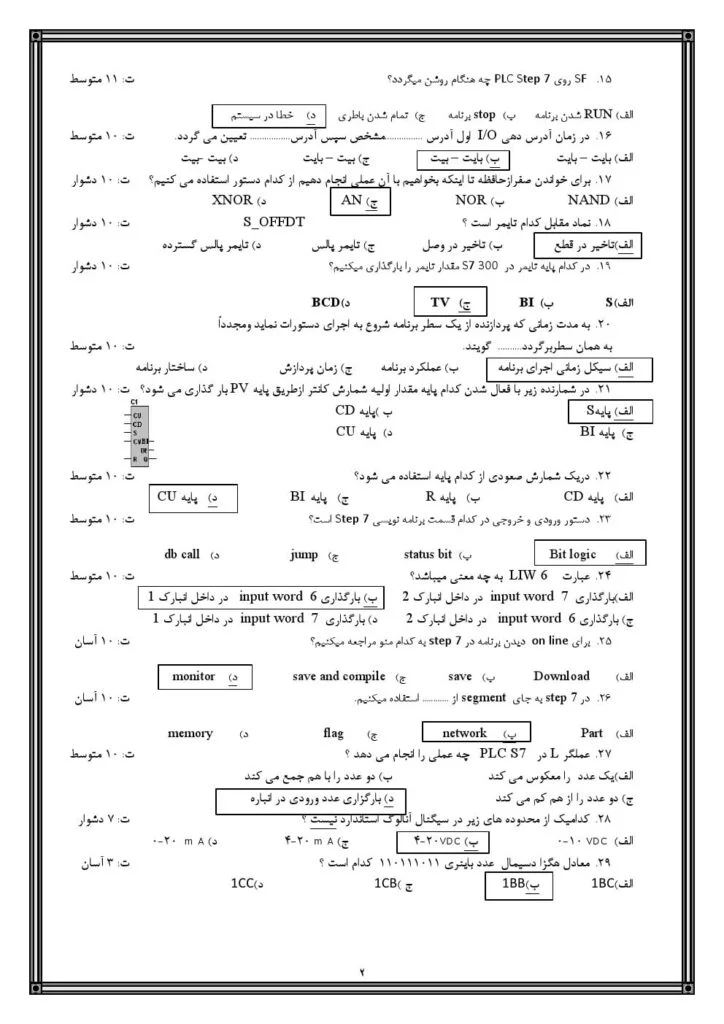 ۱۵. SF روی PLC Step 7 چه هنگام روشن میگردد؟ ت: ۱۱ متوسط
الف) RUN شدن برنامه ب) stop برنامه ج) تمام شدن باطری د) خطا در سیستم
۱۶. در زمان آدرس دهی I/O اول آدرس ...............مشخص سپس آدرس................ تعیین می گردد. ت: ۱۰ متوسط
الف) بایت – بایت ب) بایت – بیت ج) بیت – بایت د) بیت -بیت
۱۷. برای خواندن صفرازحافظه تا اینکه بخواهیم با آن عملی انجام دهیم از کدام دستور استفاده می کنیم؟ ت: ۱۰ دشوار
الف) NAND ب) NOR ج) AN د) XNOR
۱۸. نماد مقابل کدام تایمر است ؟ S_OFFDT ت: ۱۰ دشوار
الف)تاخیر در قطع ب) تاخیر در وصل ج) تایمر پالس د) تایمر پالس گسترده
۱۹. در کدام پایه تایمر در S7 300 مقدار تایمر را بارگذاری میکنیم؟ ت: ۱۰ دشوار
الف)S ب) BI ج) TV د)BCD
۲۰. به مدت زمانی که پردازنده از یک سطر برنامه شروع به اجرای دستورات نماید ومجدداً
به همان سطربرگردد.......... گویند. ت: ۱۰ متوسط
الف) سیکل زمانی اجرای برنامه ب) عملکرد برنامه ج) زمان پردازش د) ساختار برنامه
۲۱. در شمارنده زیر با فعال شدن کدام پایه مقدار اولیه شمارش کانتر ازطریق پایه PV بار گذاری می شود؟ ت: ۱۰ دشوار
C1
CU
CD
S
CV BI
DE
R Q
الف) پایهS ب )پایه CD
ج) پایه BI د) پایه CU
۲۲. دریک شمارش صعودی از کدام پایه استفاده می شود؟ ت: ۱۰ متوسط
الف) پایه CD ب) پایه R ج) پایه BI د) پایه CU
۲۳. دستور ورودی و خروجی در کدام قسمت برنامه نویسی Step 7 است؟ ت: ۱۰ متوسط
الف) Bit logic ب) status bit ج) jump د) db call
۲۴. عبارت LIW 6 به چه معنی میباشد؟ ت: ۱۰ متوسط
الف)بارگذاری input word 7 در داخل انبارک 2 ب) بارگذاری input word 6 در داخل انبارک 1
ج) بارگذاری input word 6 در داخل انبارک 2 د) بارگذاری input word 7 در داخل انبارک 1
۲۵. برای on line دیدن برنامه در step 7 به کدام منو مراجعه میکنیم؟ ت: ۱۰ آسان
الف) Download ب) save ج) save and compile د) monitor
۲۶. در step 7 به جای segment از ........... استفاده میکنیم. ت: ۱۰ آسان
الف) Part ب) network ج) flag د) memory
۲۷. عملگر L در PLC S7 چه عملی را انجام می دهد ؟ ت: ۱۰ متوسط
الف)یک عدد را معکوس می کند ب) دو عدد را با هم جمع می کند
ج) دو عدد را از هم کم می کند د) بارگزاری عدد ورودی در انباره
۲۸. کدامیک از محدوده های زیر در سیگنال آنالوگ استاندارد نیست ؟ ت: ۷ دشوار
الف) ۰-۱۰ VDC ب) ۴-۲۰VDC ج) ۴-۲۰ m A د) ۰-۲۰ m A
۲۹. معادل هگزا دسیمال عدد باینری ۱۱۰۱۱۱۰۱۱ کدام است ؟ ت: ۳ آسان
الف)1BC ب)1BB ج )1CB د)1CC
۲